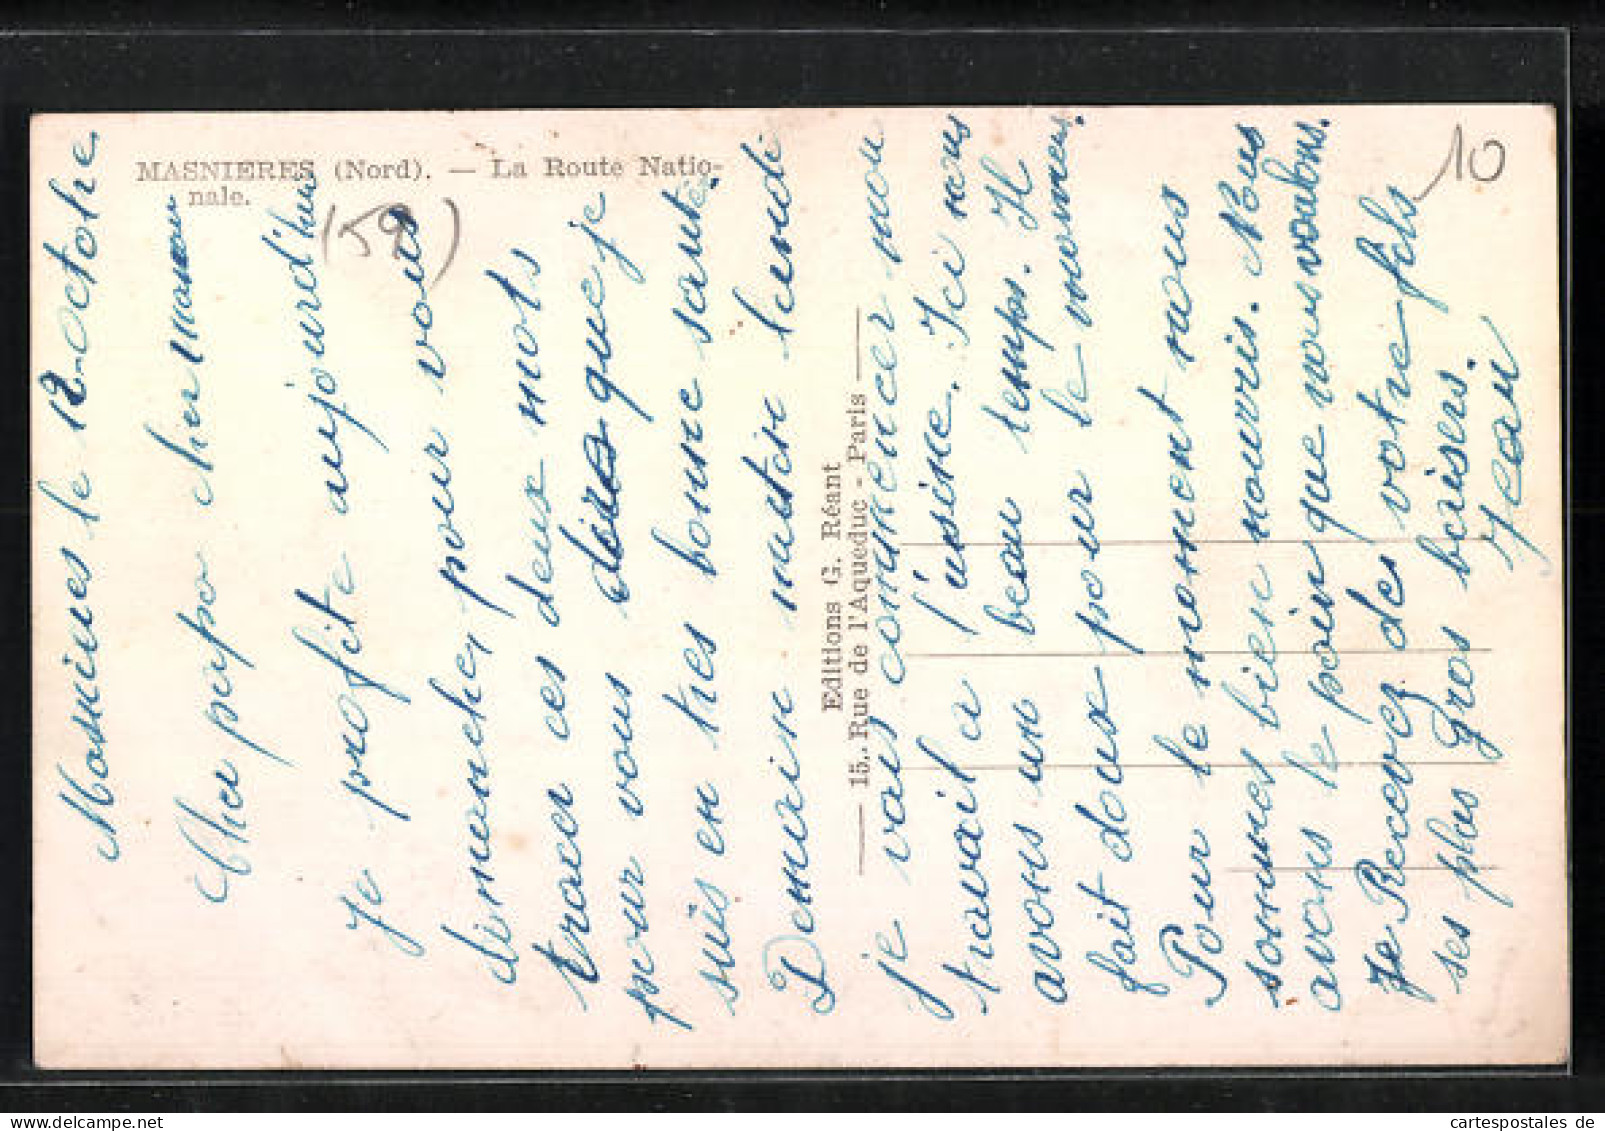 MASNIERES (Nord). — La Route Natio-
nale.
(59)
10
Editions G. Réant
— 15, Rue de l'Aqueduc - Paris —
Masnieres le 12 octobre
Cher papa cher maman
Je profite aujourd'hui
dimanche, pour vous
tracer ces deux mots
pour vous dire que je
suis en tres bonne santé.
Demain matin lundi
je vais commencer mon
travail a l'usine. Ici nous
avons un beau temps. Il
fait doux pour le moment.
Pour le moment nous
sommes bien nourris. Nous
avons le pain que nous voulons.
Je Recevez de votre fils
ses plus gros baisers.
Jean
cartespostales de